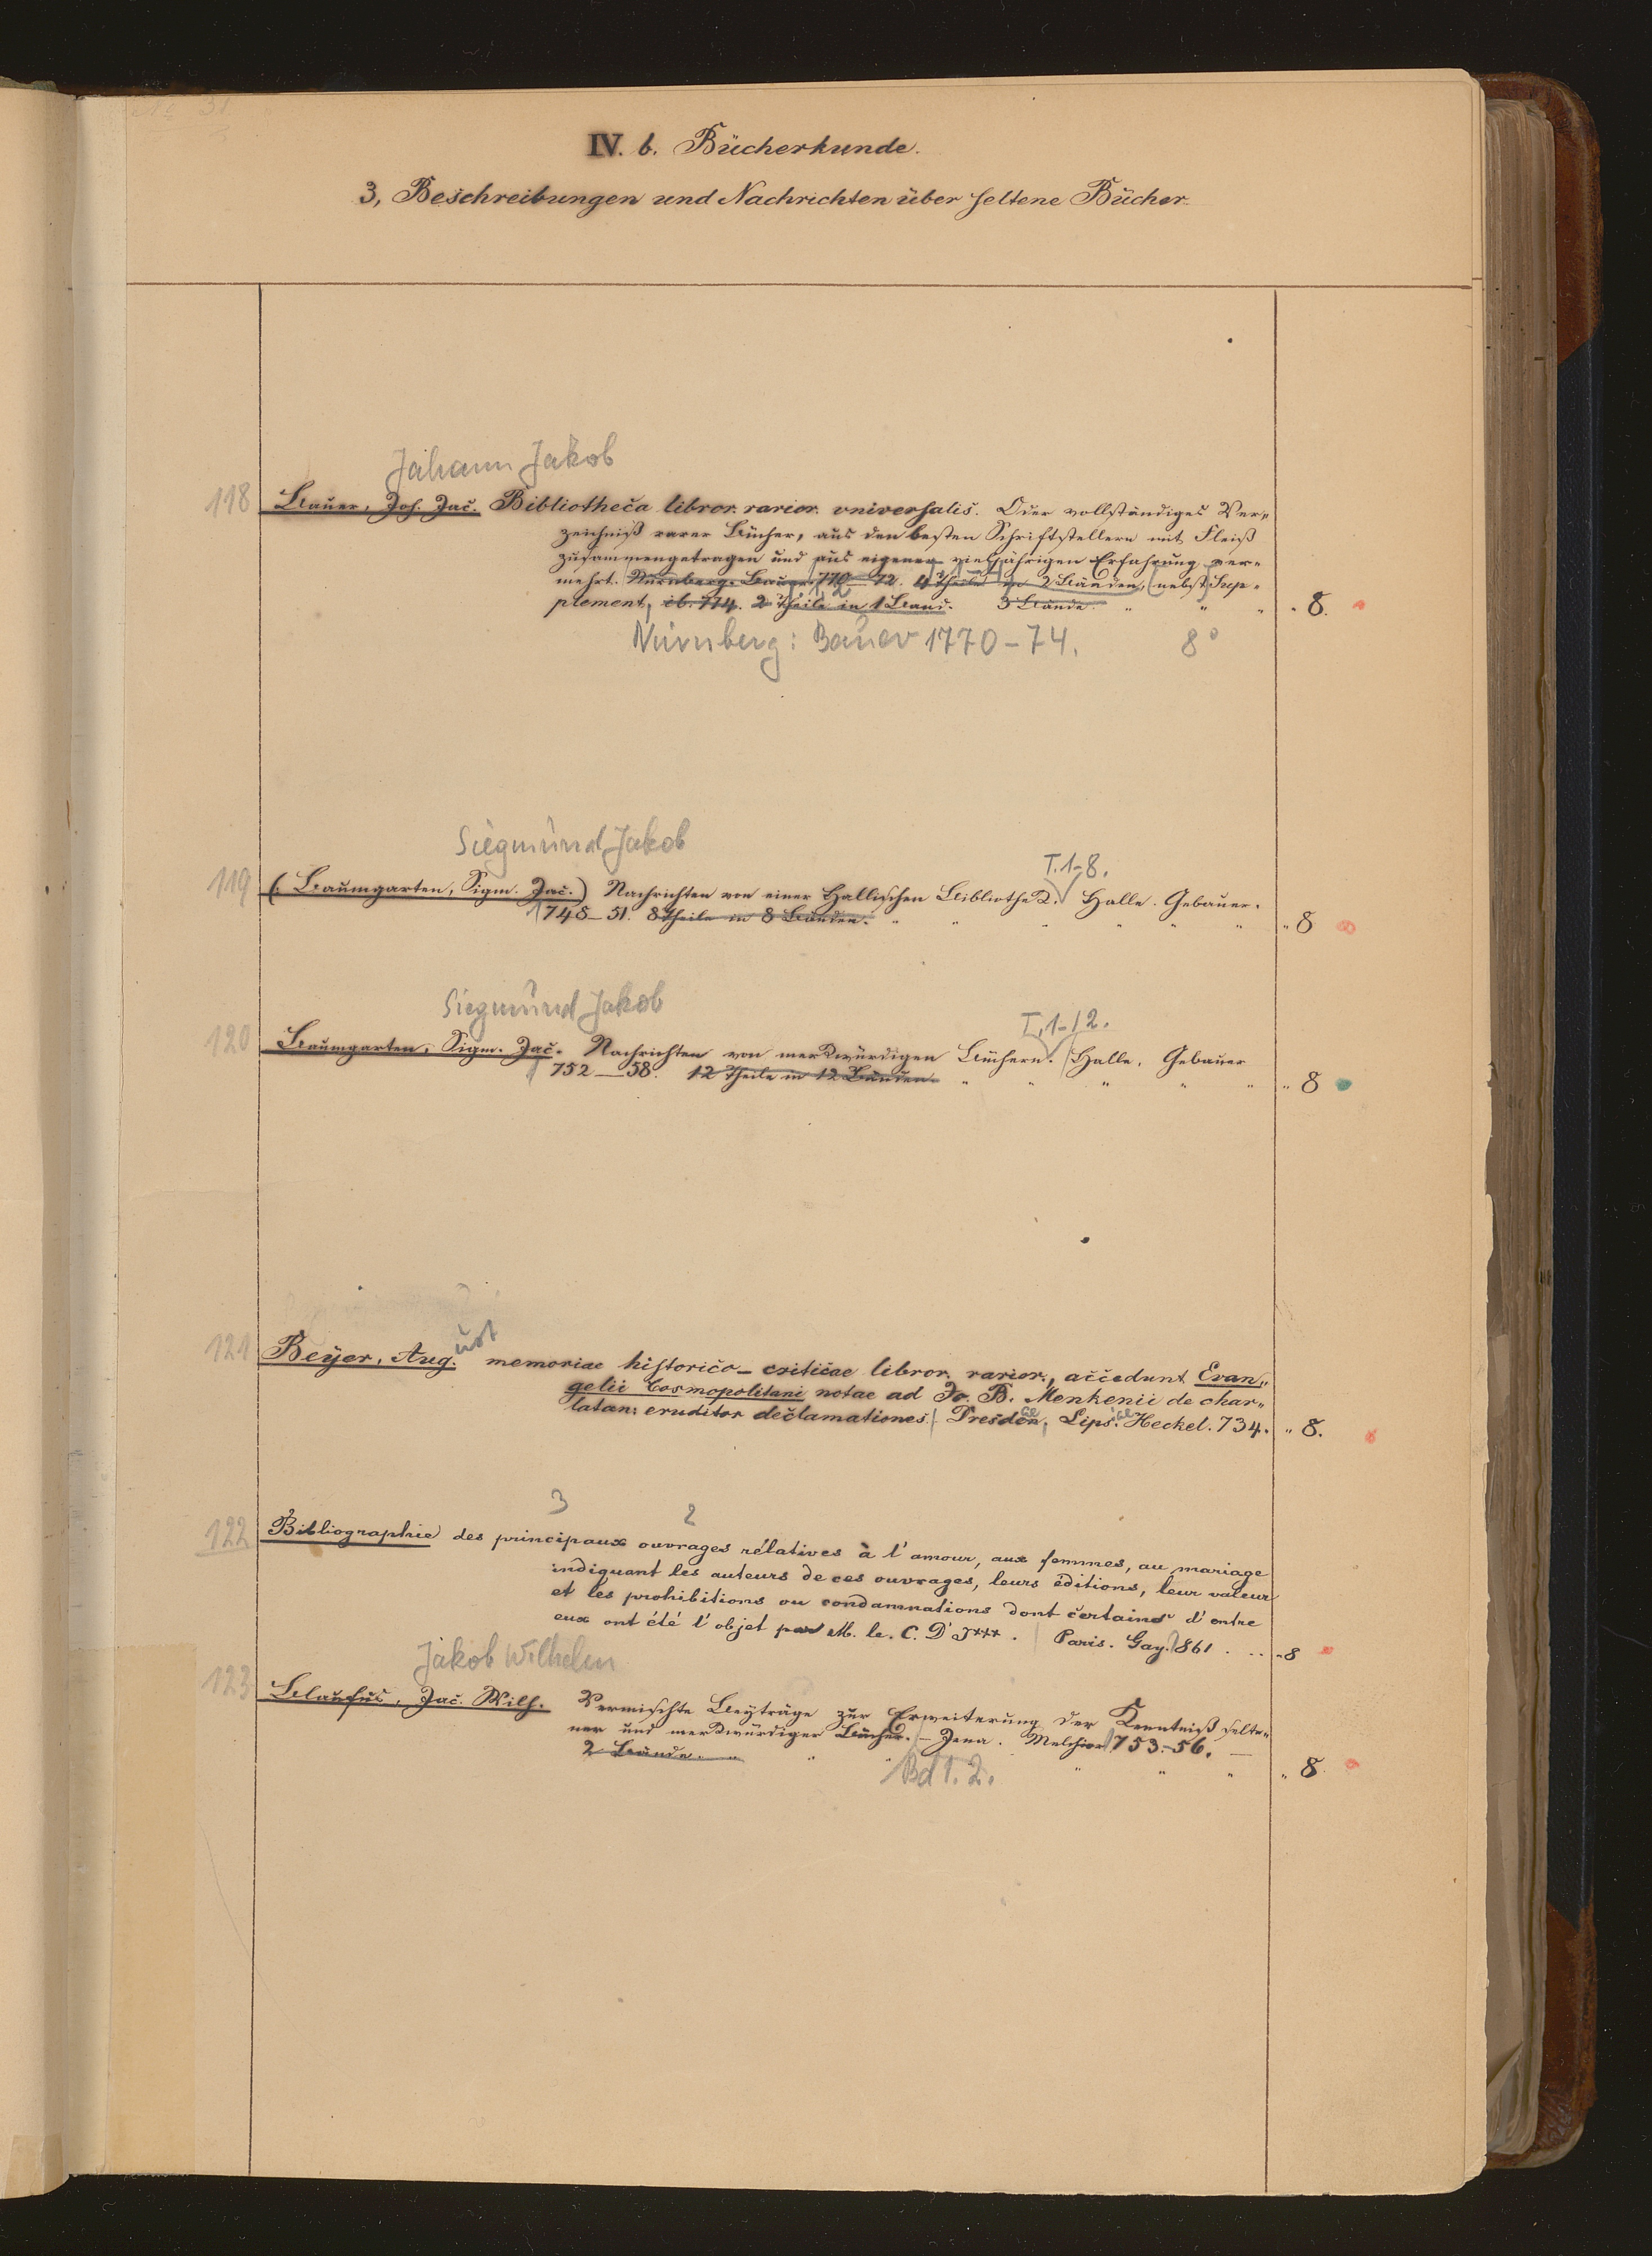 IV. b. Bücherkunde.
3, Beschreibungen und Nachrichten über seltene Bücher.
Johann Jakob
118 Bauer, Joh. Jac. Bibliotheca libror. rarior. vniversalis. Oder vollständiges Ver-
zeichniß rarer Bücher, aus den besten Schriftstellern mit Fleiß
zusammengetragen und aus eigener vieljährigen Erfahrung ver-
mehrt. Nürnberg. Bauer. 770–72. 4 Theile in 2 Bänden, nebst Sup-
plement, ib. 774. 2 Theile in 1 Band. 3 Bände. " " " " 8.
Nürnberg: Bauer 1770-74. 8°
Siegmund Jakob
T. 1-8.
119 (: Baumgarten, Sigm. Jac.) Nachrichten von einer Hallischen Bibliothek. Halle. Gebauer.
1748–51. 8 Theile in 8 Bänden. " " " " " " " 8
Siegmund Jakob
T. 1-12.
120 Baumgarten, Sigm. Jac. Nachrichten von merkwürdigen Büchern. Halle. Gebauer
1752–58. 12 Theile in 12 Bänden. " " " " " " 8
ust
121 Beÿer, Aug. memoriae historico-criticae libror. rarior., accedunt Evan-
gelii Cosmopolitani notae ad Jo. B. Menkenii de char-
latan: eruditor declamationes. Dresden, Lips. Heckel. 734. " 8.
3 2
122 Bibliographie des principaux ouvrages rélatives à l'amour, aux femmes, au mariage
indiquant les auteurs de ces ouvrages, leurs éditions, leur valeur
et les prohibitions ou condamnations dont certains d'entre
eux ont été l'objet par M. le. C. D' J***. Paris. Gay. 1861 . . . " 8
Jakob Wilhelm
123 Blaufus, Jac. Wilh. Vermischte Beyträge zur Erweiterung der Kenntniß selte-
ner und merkwürdiger Bücher. – Jena. Melchior 1753–56. –
2 Bände. " " " " " " " 8.
Bd 1. 2.